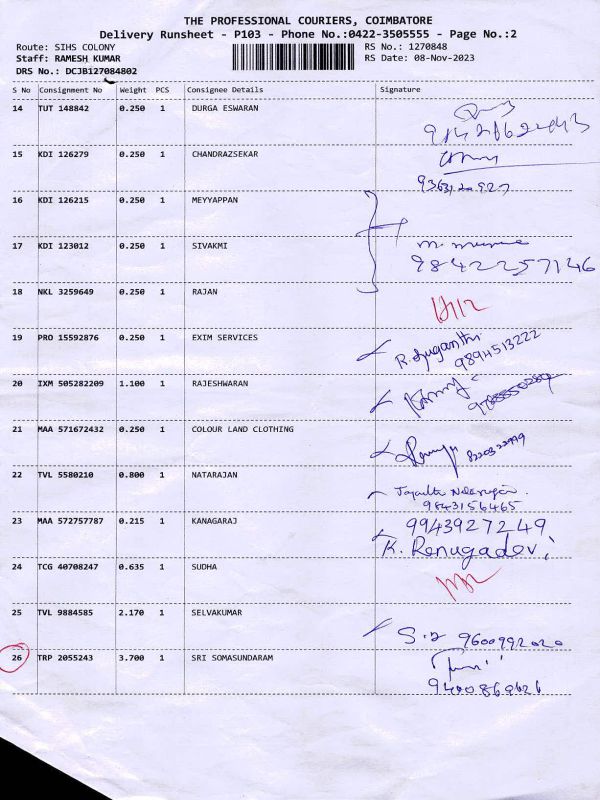 THE PROFESSIONAL COURIERS, COIMBATORE
Delivery Runsheet - P103 - Phone No.:0422-3505555 - Page No.:2
Route: SIHS COLONY RS No.: 1270848
Staff: RAMESH KUMAR RS Date: 08-Nov-2023
DRS No.: DCJB127084802
S No Consignment No Weight PCS Consignee Details Signature
14 TUT 148842 0.250 1 DURGA ESWARAN
15 KDI 126279 0.250 1 CHANDRAZSEKAR
16 KDI 126215 0.250 1 MEYYAPPAN
17 KDI 123012 0.250 1 SIVAKMI
9842257146
18 NKL 3259649 0.250 1 RAJAN
19 PRO 15592876 0.250 1 EXIM SERVICES
R. Suganthi
9894513222
20 IXM 505282209 1.100 1 RAJESHWARAN
21 MAA 571672432 0.250 1 COLOUR LAND CLOTHING
22 TVL 5580210 0.800 1 NATARAJAN
9843156465
23 MAA 572757787 0.215 1 KANAGARAJ 9943927249
K. Renugadevi
24 TCG 40708247 0.635 1 SUDHA
25 TVL 9884585 2.170 1 SELVAKUMAR
9600992020
26 TRP 2055243 3.700 1 SRI SOMASUNDARAM